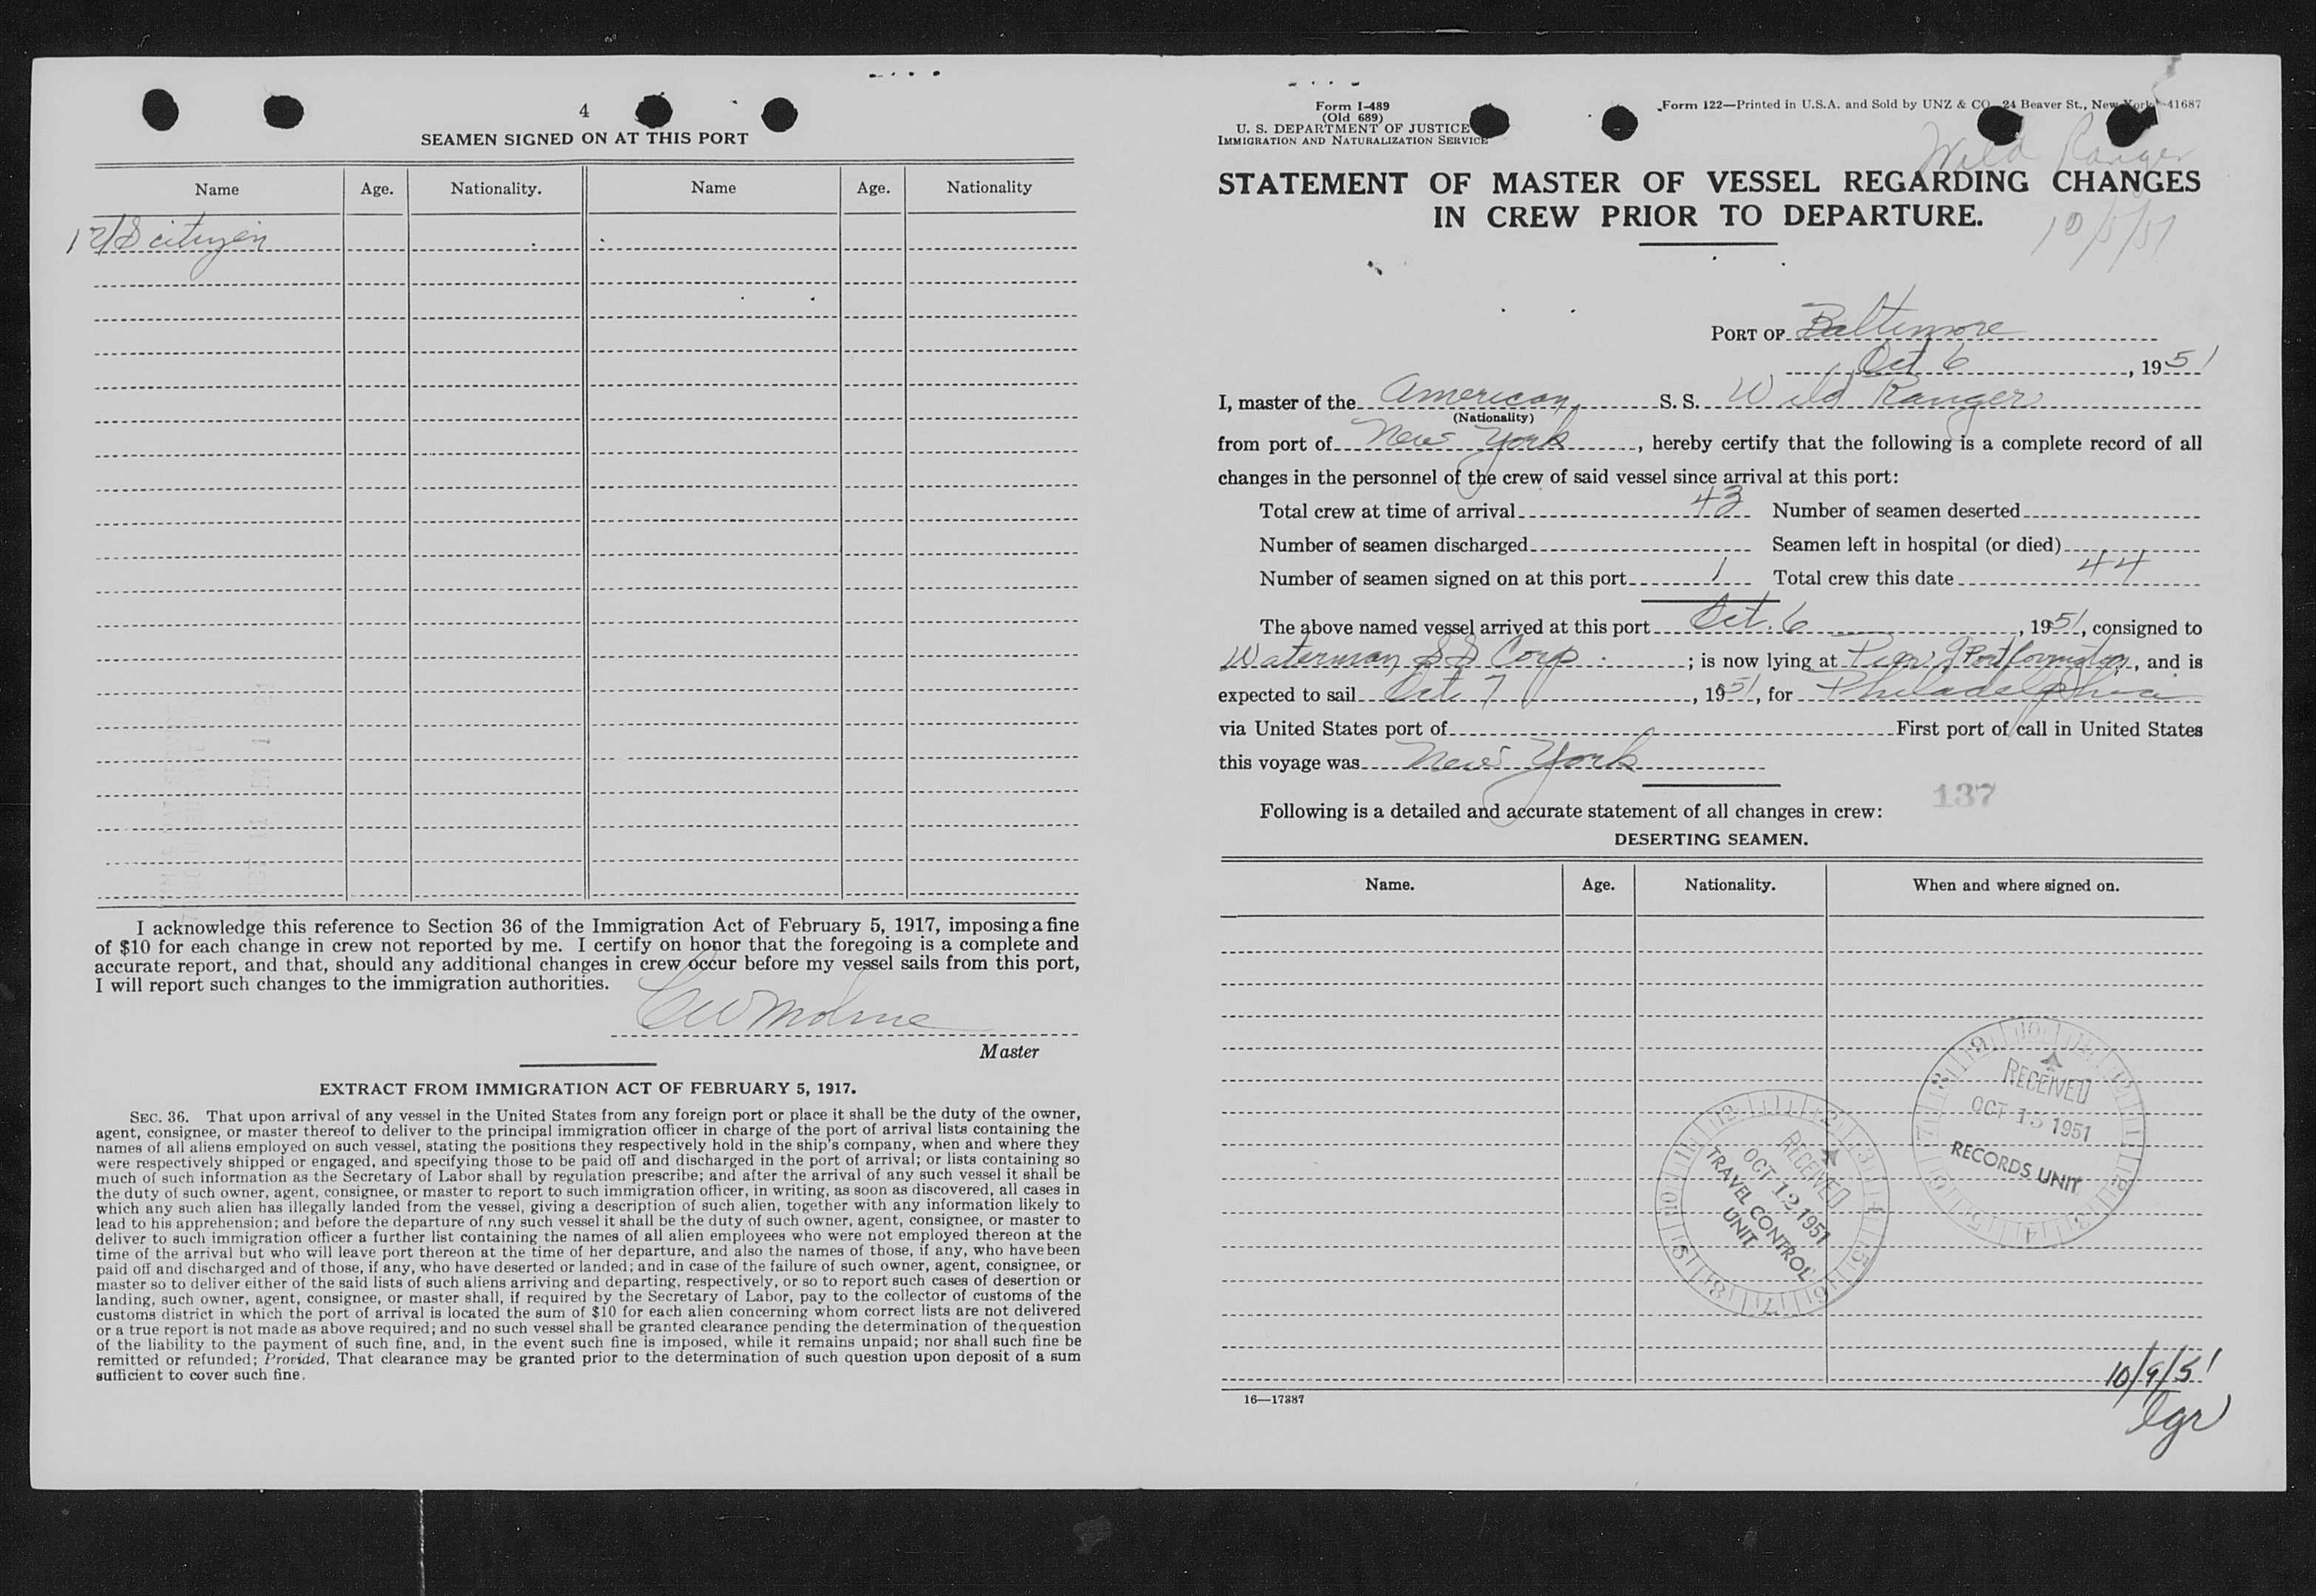 4
SEAMEN SIGNED ON AT THIS PORT
Name Age. Nationality. Name Age. Nationality
1 US citizen
I acknowledge this reference to Section 36 of the Immigration Act of February 5, 1917, imposing a fine
of $10 for each change in crew not reported by me. I certify on honor that the foregoing is a complete and
accurate report, and that, should any additional changes in crew occur before my vessel sails from this port,
I will report such changes to the immigration authorities.
Master
EXTRACT FROM IMMIGRATION ACT OF FEBRUARY 5, 1917.
SEC. 36. That upon arrival of any vessel in the United States from any foreign port or place it shall be the duty of the owner,
agent, consignee, or master thereof to deliver to the principal immigration officer in charge of the port of arrival lists containing the
names of all aliens employed on such vessel, stating the positions they respectively hold in the ship's company, when and where they
were respectively shipped or engaged, and specifying those to be paid off and discharged in the port of arrival; or lists containing so
much of such information as the Secretary of Labor shall by regulation prescribe; and after the arrival of any such vessel it shall be
the duty of such owner, agent, consignee, or master to report to such immigration officer, in writing, as soon as discovered, all cases in
which any such alien has illegally landed from the vessel, giving a description of such alien, together with any information likely to
lead to his apprehension; and before the departure of any such vessel it shall be the duty of such owner, agent, consignee, or master to
deliver to such immigration officer a further list containing the names of all alien employees who were not employed thereon at the
time of the arrival but who will leave port thereon at the time of her departure, and also the names of those, if any, who have been
paid off and discharged and of those, if any, who have deserted or landed; and in case of the failure of such owner, agent, consignee, or
master so to deliver either of the said lists of such aliens arriving and departing, respectively, or so to report such cases of desertion or
landing, such owner, agent, consignee, or master shall, if required by the Secretary of Labor, pay to the collector of customs of the
customs district in which the port of arrival is located the sum of $10 for each alien concerning whom correct lists are not delivered
or a true report is not made as above required; and no such vessel shall be granted clearance pending the determination of the question
of the liability to the payment of such fine, and, in the event such fine is imposed, while it remains unpaid; nor shall such fine be
remitted or refunded; Provided, That clearance may be granted prior to the determination of such question upon deposit of a sum
sufficient to cover such fine.
Form I-489
(Old 689)
U. S. DEPARTMENT OF JUSTICE
IMMIGRATION AND NATURALIZATION SERVICE
Form 122—Printed in U.S.A. and Sold by UNZ & CO., 24 Beaver St., New York—41687
Wild Ranger
STATEMENT OF MASTER OF VESSEL REGARDING CHANGES
IN CREW PRIOR TO DEPARTURE.
10/5/51
PORT OF Baltimore
Oct 6, 1951
I, master of the American S. S. Wild Ranger
(Nationality)
from port of New York, hereby certify that the following is a complete record of all
changes in the personnel of the crew of said vessel since arrival at this port:
Total crew at time of arrival 43 Number of seamen deserted
Number of seamen discharged Seamen left in hospital (or died)
Number of seamen signed on at this port 1 Total crew this date 44
The above named vessel arrived at this port Oct. 6, 1951, consigned to
Waterman SS Corp; is now lying at Pier 9 Port Covington, and is
expected to sail Oct. 7, 1951, for Philadelphia
via United States port of First port of call in United States
this voyage was New York
137
Following is a detailed and accurate statement of all changes in crew:
DESERTING SEAMEN.
Name. Age. Nationality. When and where signed on.
RECEIVED
OCT 13 1951
RECORDS UNIT
RECEIVED
OCT 12 1951
TRAVEL CONTROL
UNIT
10/9/51
16—17387